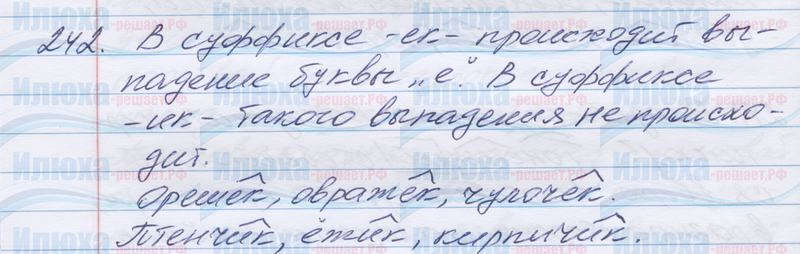 242. В суффиксе -ек- происходит вы-
падение буквы „е". В суффиксе
-ик- такого выпадения не происхо-
дит.
Орешек, овражек, чулочек.
Птенчик, ёжик, кирпичик.
Илюха -решает.РФ